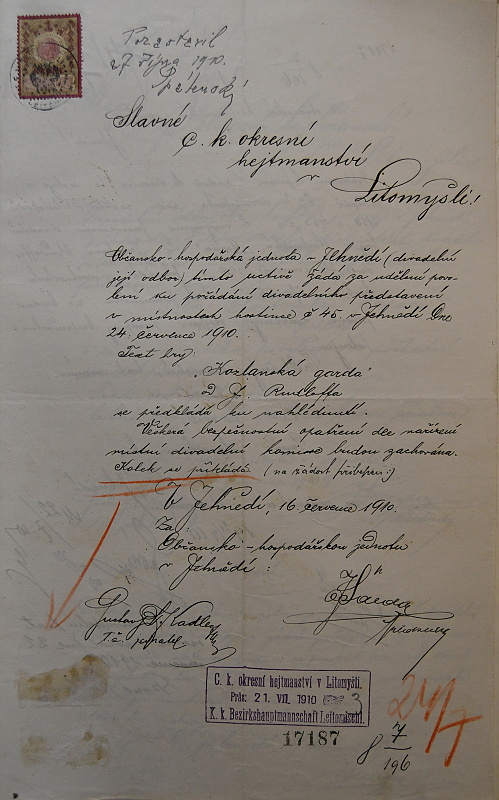 Pozastavil
27 října 1910.
Slavné
C. k. okresní
hejtmanství
v
Litomyšli!
Občansko-hospodářská jednota v Jehnědí (divadelní
její odbor) tímto uctivě žádá za udělení povo-
lení ku pořádání divadelního představení
v místnostech hostince č 45. v Jehnědí Dne
24. července 1910.
Text hry:
„Kozlanská garda"
J. Rudloffa
se předkládá ku nahlédnutí.
Veškerá bezpečnostní opatření dle nařízení
místní divadelní komise budou zachována.
Kolek se přikládá. (na žádost přilepen:)
V Jehnědí, 16. července 1910.
Za:
Občansko-hospodářskou jednotu
v Jehnědí:
Gustav Kadlec
T. č. jednatel
C. k. okresní hejtmanství v Litomyšli.
Präs: 21. VII. 1910 3
K. k. Bezirkshauptmannschaft Leitomischl.
17187
24/7
8 7/196